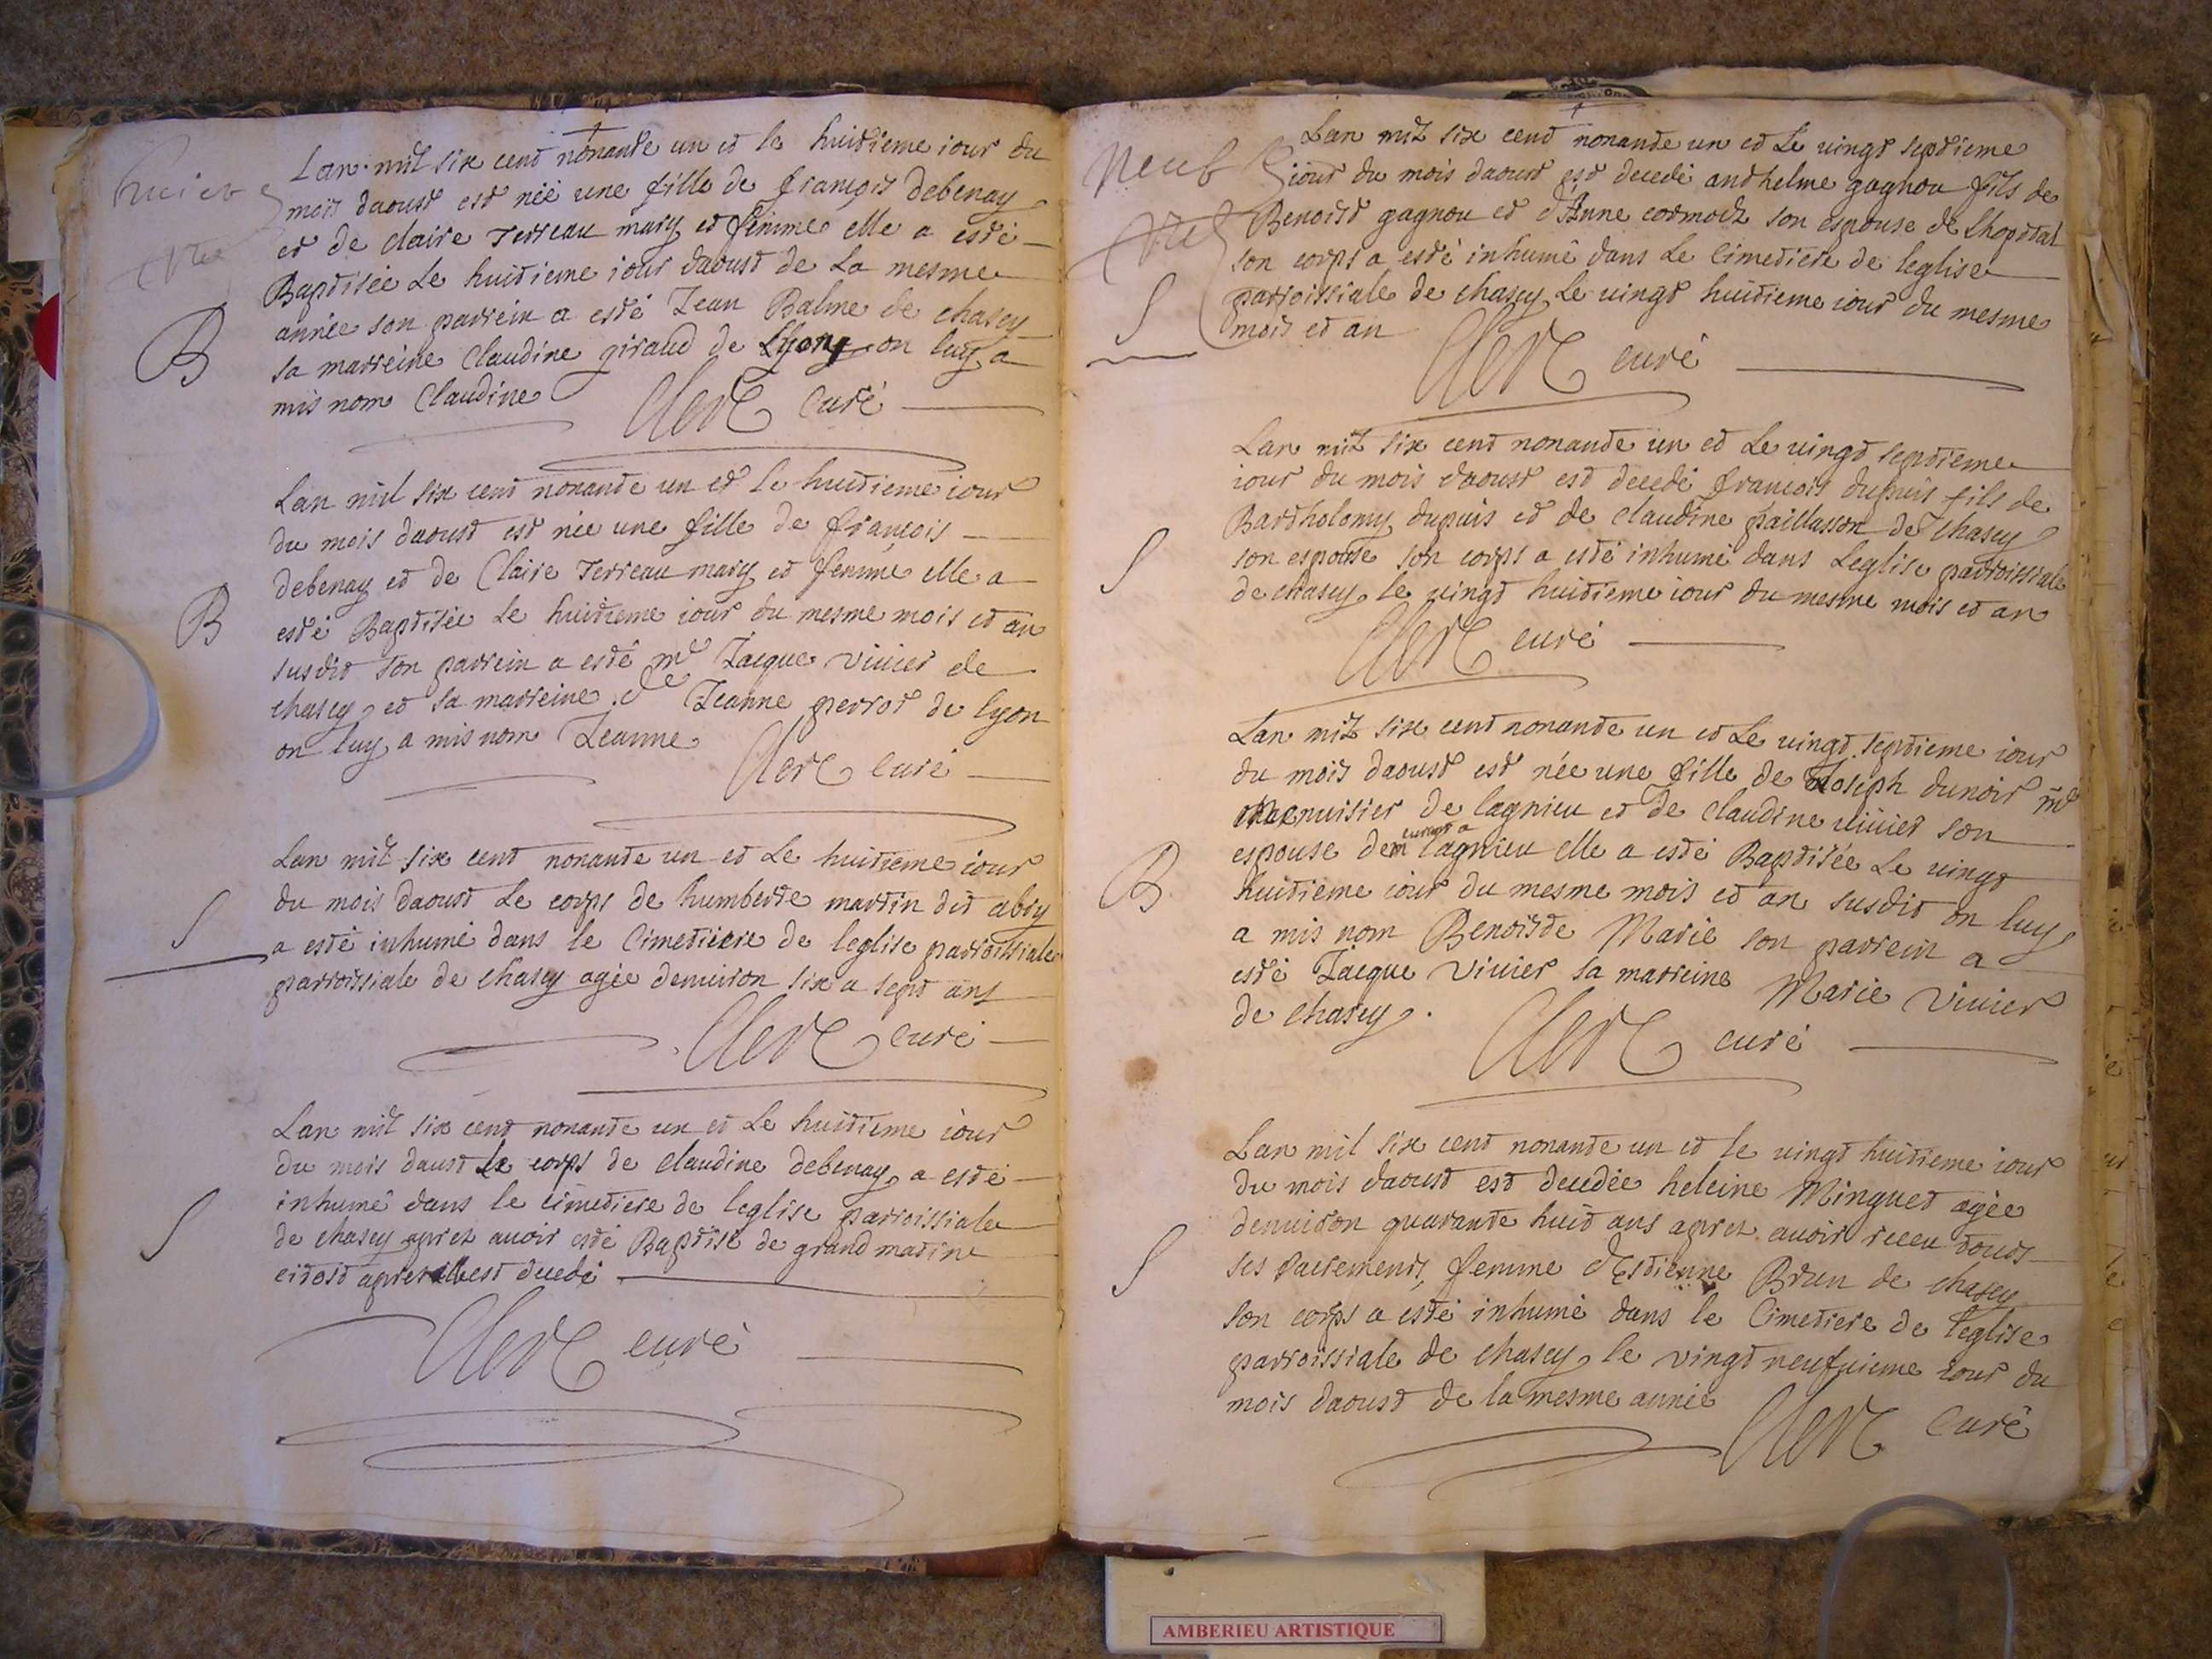 Lan mil six cent nonante un et le huitieme iour du
mois daoust est née une fille de françois debenay
et de claire Terreau mary et femme elle a esté
Baptisée Le huitieme iour daoust de La mesme
année son parrein a esté Jean Balme de chasey
sa marreine Claudine giraud de Lyon on luy a
mis nom Claudine
Clerc Curé
B
Lan mil six cent nonante un et le huitieme iour
du mois daoust est née une fille de françois
debenay et de Claire Terreau mary et femme elle a
esté Baptisée Le huitieme iour du mesme mois et an
susdit son parrein a esté mre Jacque Viuier de
chasey et sa marreine de Jeanne perrot de lyon
on luy a mis nom Jeanne
Clerc Curé
B
Lan mil six cent nonante un et Le huitieme iour
du mois daoust Le corps de humberte martin dit abry
a esté inhumé dans le Cimetiere de leglise parroissiale
parroissiale de chasey agée denuiron six a sept ans
Clerc Curé
S
Lan mil six cent nonante un et Le huitieme iour
du mois daust Le corps de Claudine debenay a esté
inhumé dans le cimetiere de leglise parroissiale
de chasey aprez auoir esté Baptise de grand matin
citost apres est decedé
Clerc curé
S
neuf
Lan mil six cent nonante un et Le uingt septieme
iour du mois daoust est decedé anthelme gagnou fils de
Benoist gagnou et d'Anne cormoz son espouse de Lhopital
son corps a esté inhumé dans Le Cimetiere de leglise
parroissiale de chasey Le uingt huitieme iour du mesme
mois et an
Clerc curé
S
Lan mil six cent nonante un et Le uingt septieme
iour du mois daoust est decedé françois dupuis fils de
Bartholomy dupuis et de claudine paillasson de Chasey
son espouse son corps a esté inhumé dans Leglise parroissiale
de chasey le uingt huitieme iour du mesme mois et an
Clerc curé
S
Lan mil six cent nonante un et Le uingt septieme iour
du mois daoust est née une fille de Joseph dunoir me
menuisier de lagnieu et de claudine uiuier son
espouse lagnieu elle a esté Baptisée Le uingt
huitieme iour du mesme mois et an susdit on luy
a mis nom Benoiste Marie son parrein a
esté Jacque Viuier sa marreine Marie Viuier
de chasey.
Clerc curé
B
Lan mil six cent nonante un et le uingt huitieme iour
du mois daoust est decedée heleine Minguet agée
denuiron quarante huit ans aprez auoir receu touts
ses sacrements femme d'Estienne Brun de chasey
son corps a esté inhumé dans le Cimetiere de leglise
parroissiale de chasey le vingt neufuieme iour du
mois daoust de la mesme année
Clerc Curé
S
AMBERIEU ARTISTIQUE